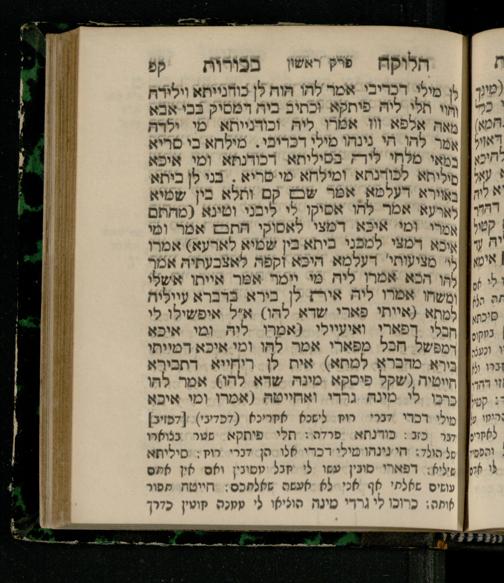 חלוקה פרק ראשון בכורות קפ
לן מילי דכדיבי אמר להו הוה לן כודנייתא וילידה
והוי תלי ליה פיתקא וכתיב ביה דמסיק בבי אבא
מאה אלפא זוז אמרו ליה וכודנייתא מי ילדה
אמר להו הי נינהו מילי דכדיבי. מילחא כי סריא
במאי מלחי ליה בסיליתא דכודנתא ומי איכא
סיליתא לכודנתא ומילחא מי סריא. בני לן ביתא
באוירא דעלמא אמר שם קם ותלא בין שמיא
לארעא אמר להו אסיקו לי ליבני וטינא (מהתם
אמרי ומי איכא דמצי לאסוקי התם אמר ומי
איכא דמצי למבני ביתא בין שמיא לארעא) אמרו
לי' מציעותי' דעלמא היכא זקפה לאצבעתיה אמר
להו הכא אמרו ליה מי יימר אמר אייתו אשלי
ומשחו אמרו ליה אית לן בירא בדברא עייליה
למתא (אייתי פארי שדא להו) א"ל איפשילו לי
חבלי דפארי ואיעיילי (אמרו ליה ומי איכא
דמפשל חבל מפארי אמר להו ומי איכא דמייתי
בירא מדברא למתא) אית לן ריחייא דתבירא
חייטיה (שקל פיסקא מינה שדא להו) אמר להו
כרכו לי מינה גרדי ואחייטה (אמרו ומי איכא
מילי דכדי דברי רוח לישנא אחרינא (דכדיבי) [דכזיב]
דבר כזב: כודנתא פרדה: תלי פיתקא שטר בצוארו
של הולד: הי נינהו מילי דכדי אלו הן דברי רוח: סיליתא
שיליא: דפארי סובין עשו לי חבל מסובין ואם אין אתם
עושים שאלתי אף אני לא אעשה שאלתכם: חייטה תפור
אותה: כרוכו לי גרדי מינה הוליאו לי ממנה חוטין כדרך